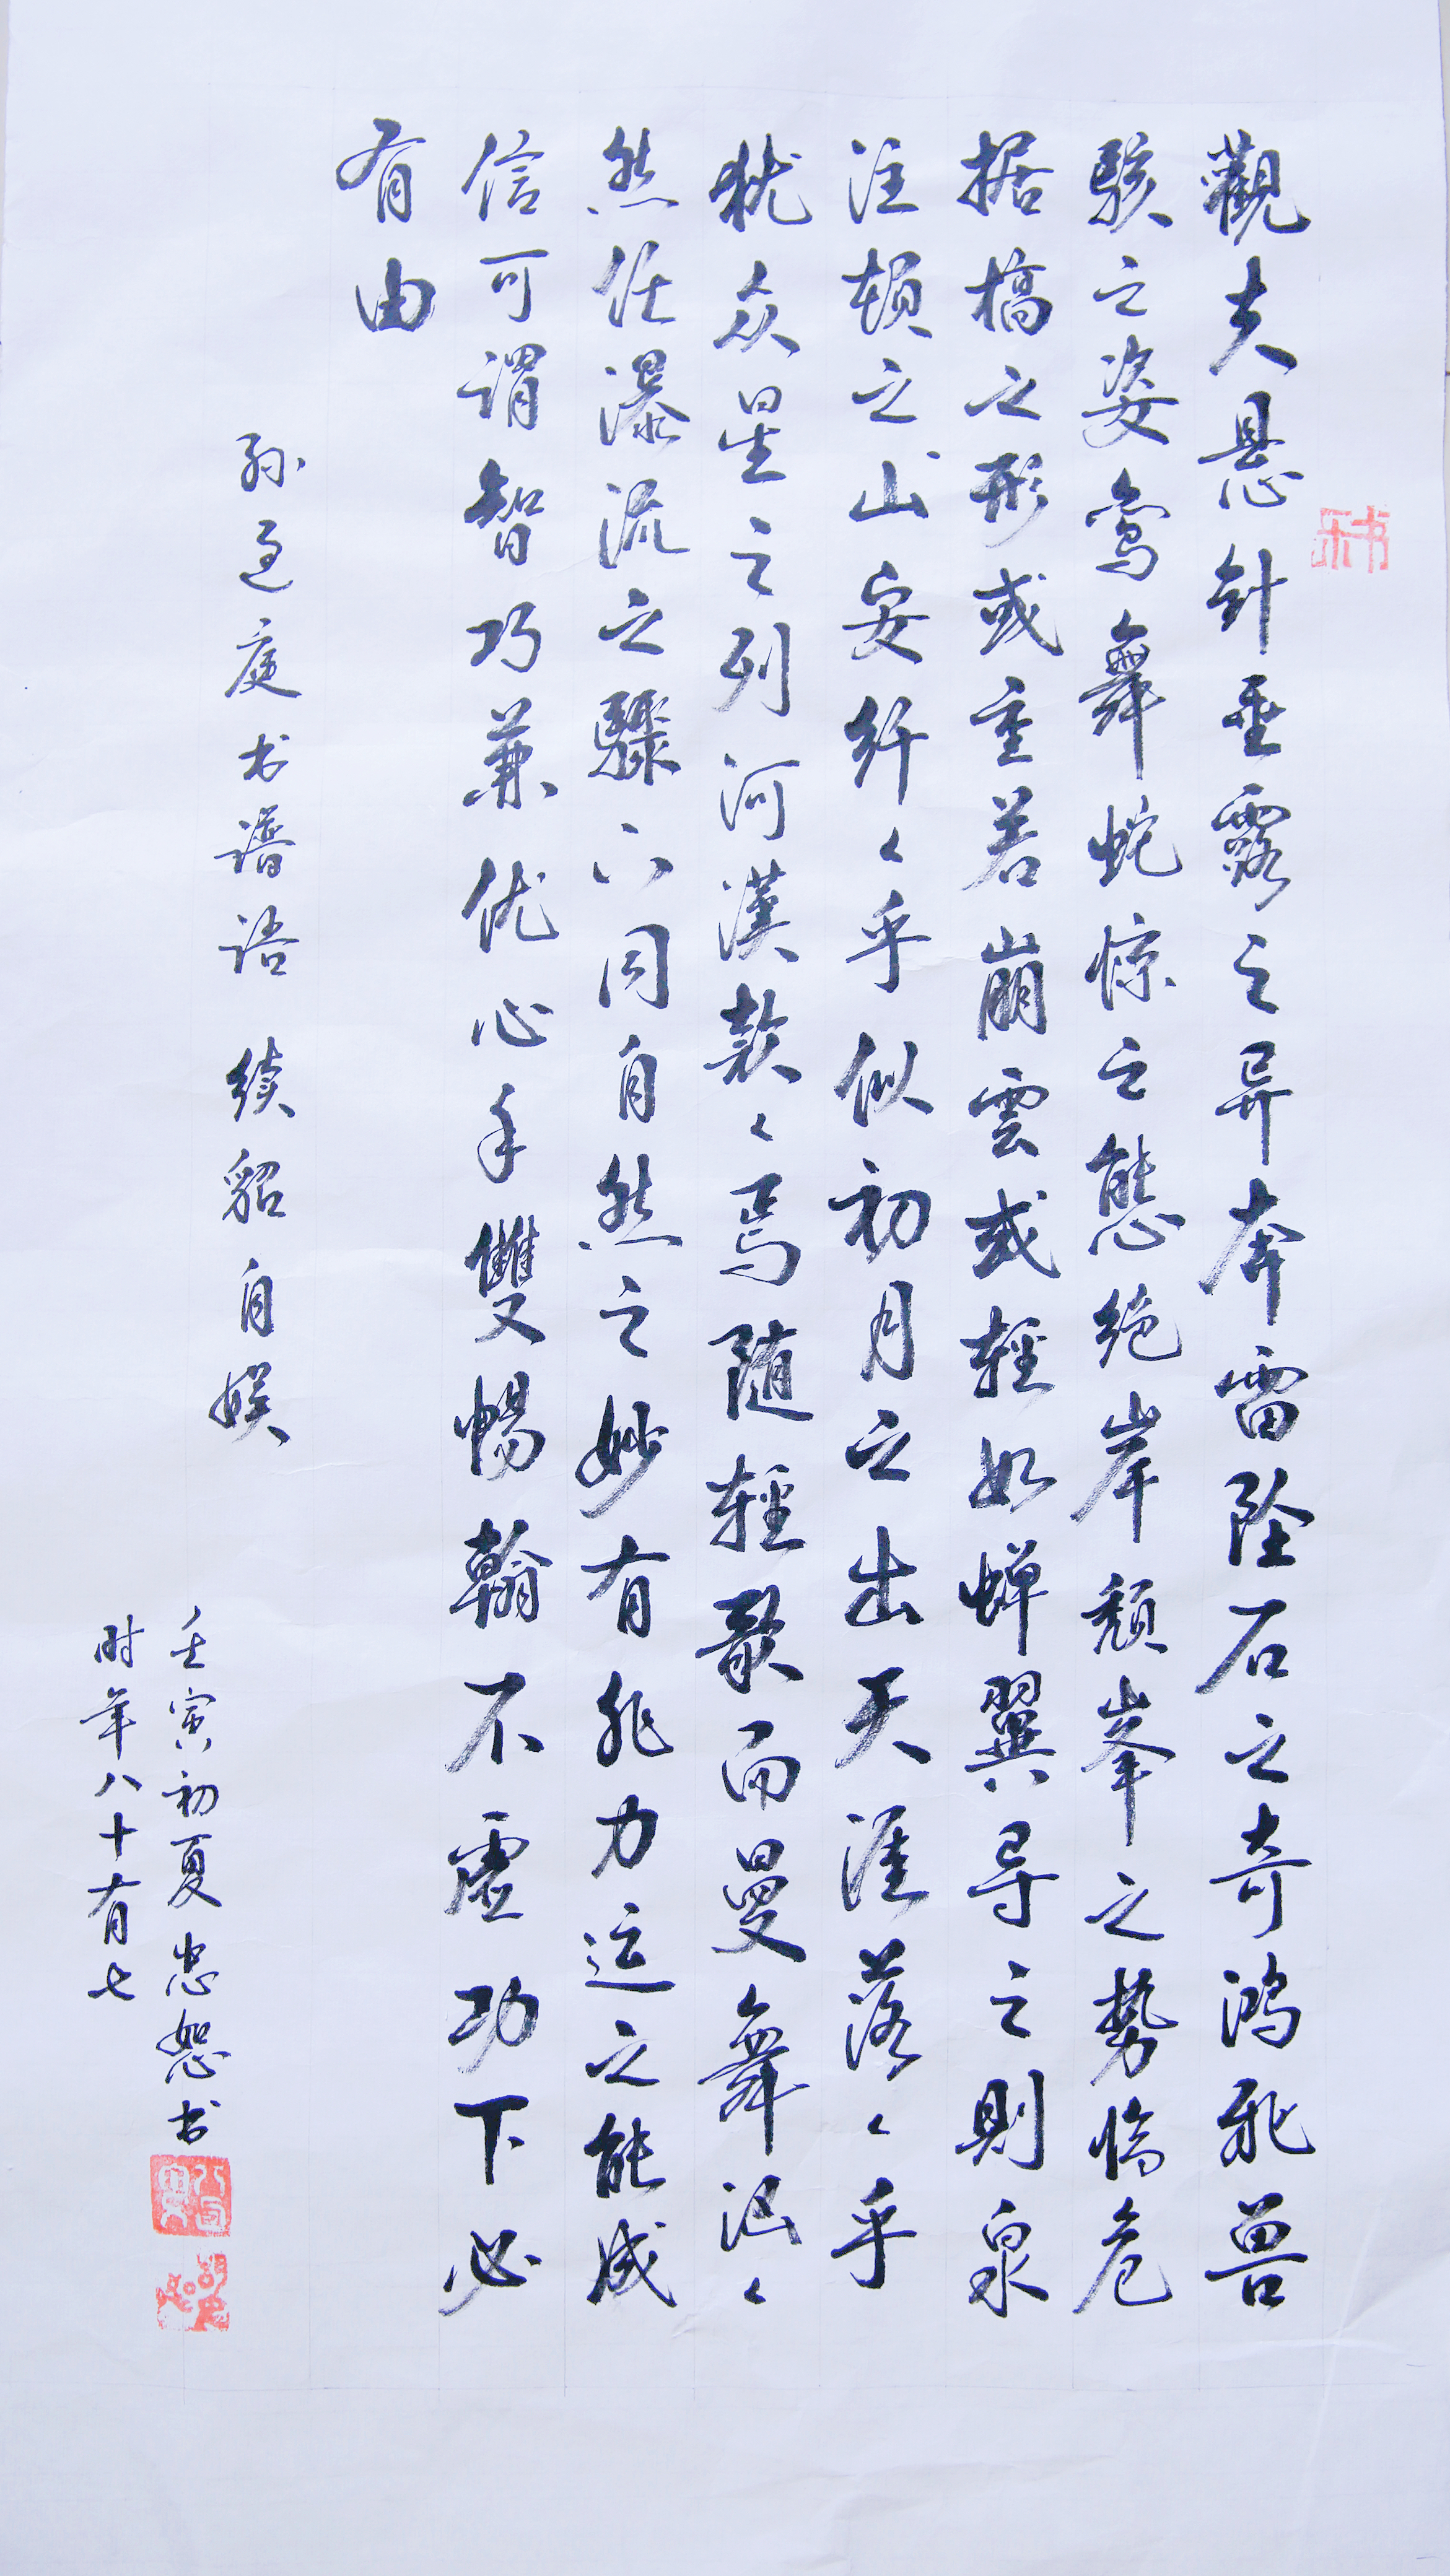 觀夫悬针垂露之异奔雷坠石之奇鸿飛兽
骇之姿鸾舞蛇惊之態绝岸頹峯之势临危
据槁之形或重若崩雲或輕如蝉翼导之則泉
注顿之山安纤々乎似初月之出天涯落々乎
犹众星之列河漢款々焉随輕歌而曼舞汨々
然任瀑流之驟六同自然之妙有非力运之能成
信可谓智巧兼优心手雙暢翰不虚功下必
有由
孙过庭书谱语 续貂自娱
壬寅初夏忠恕书
时年八十有七